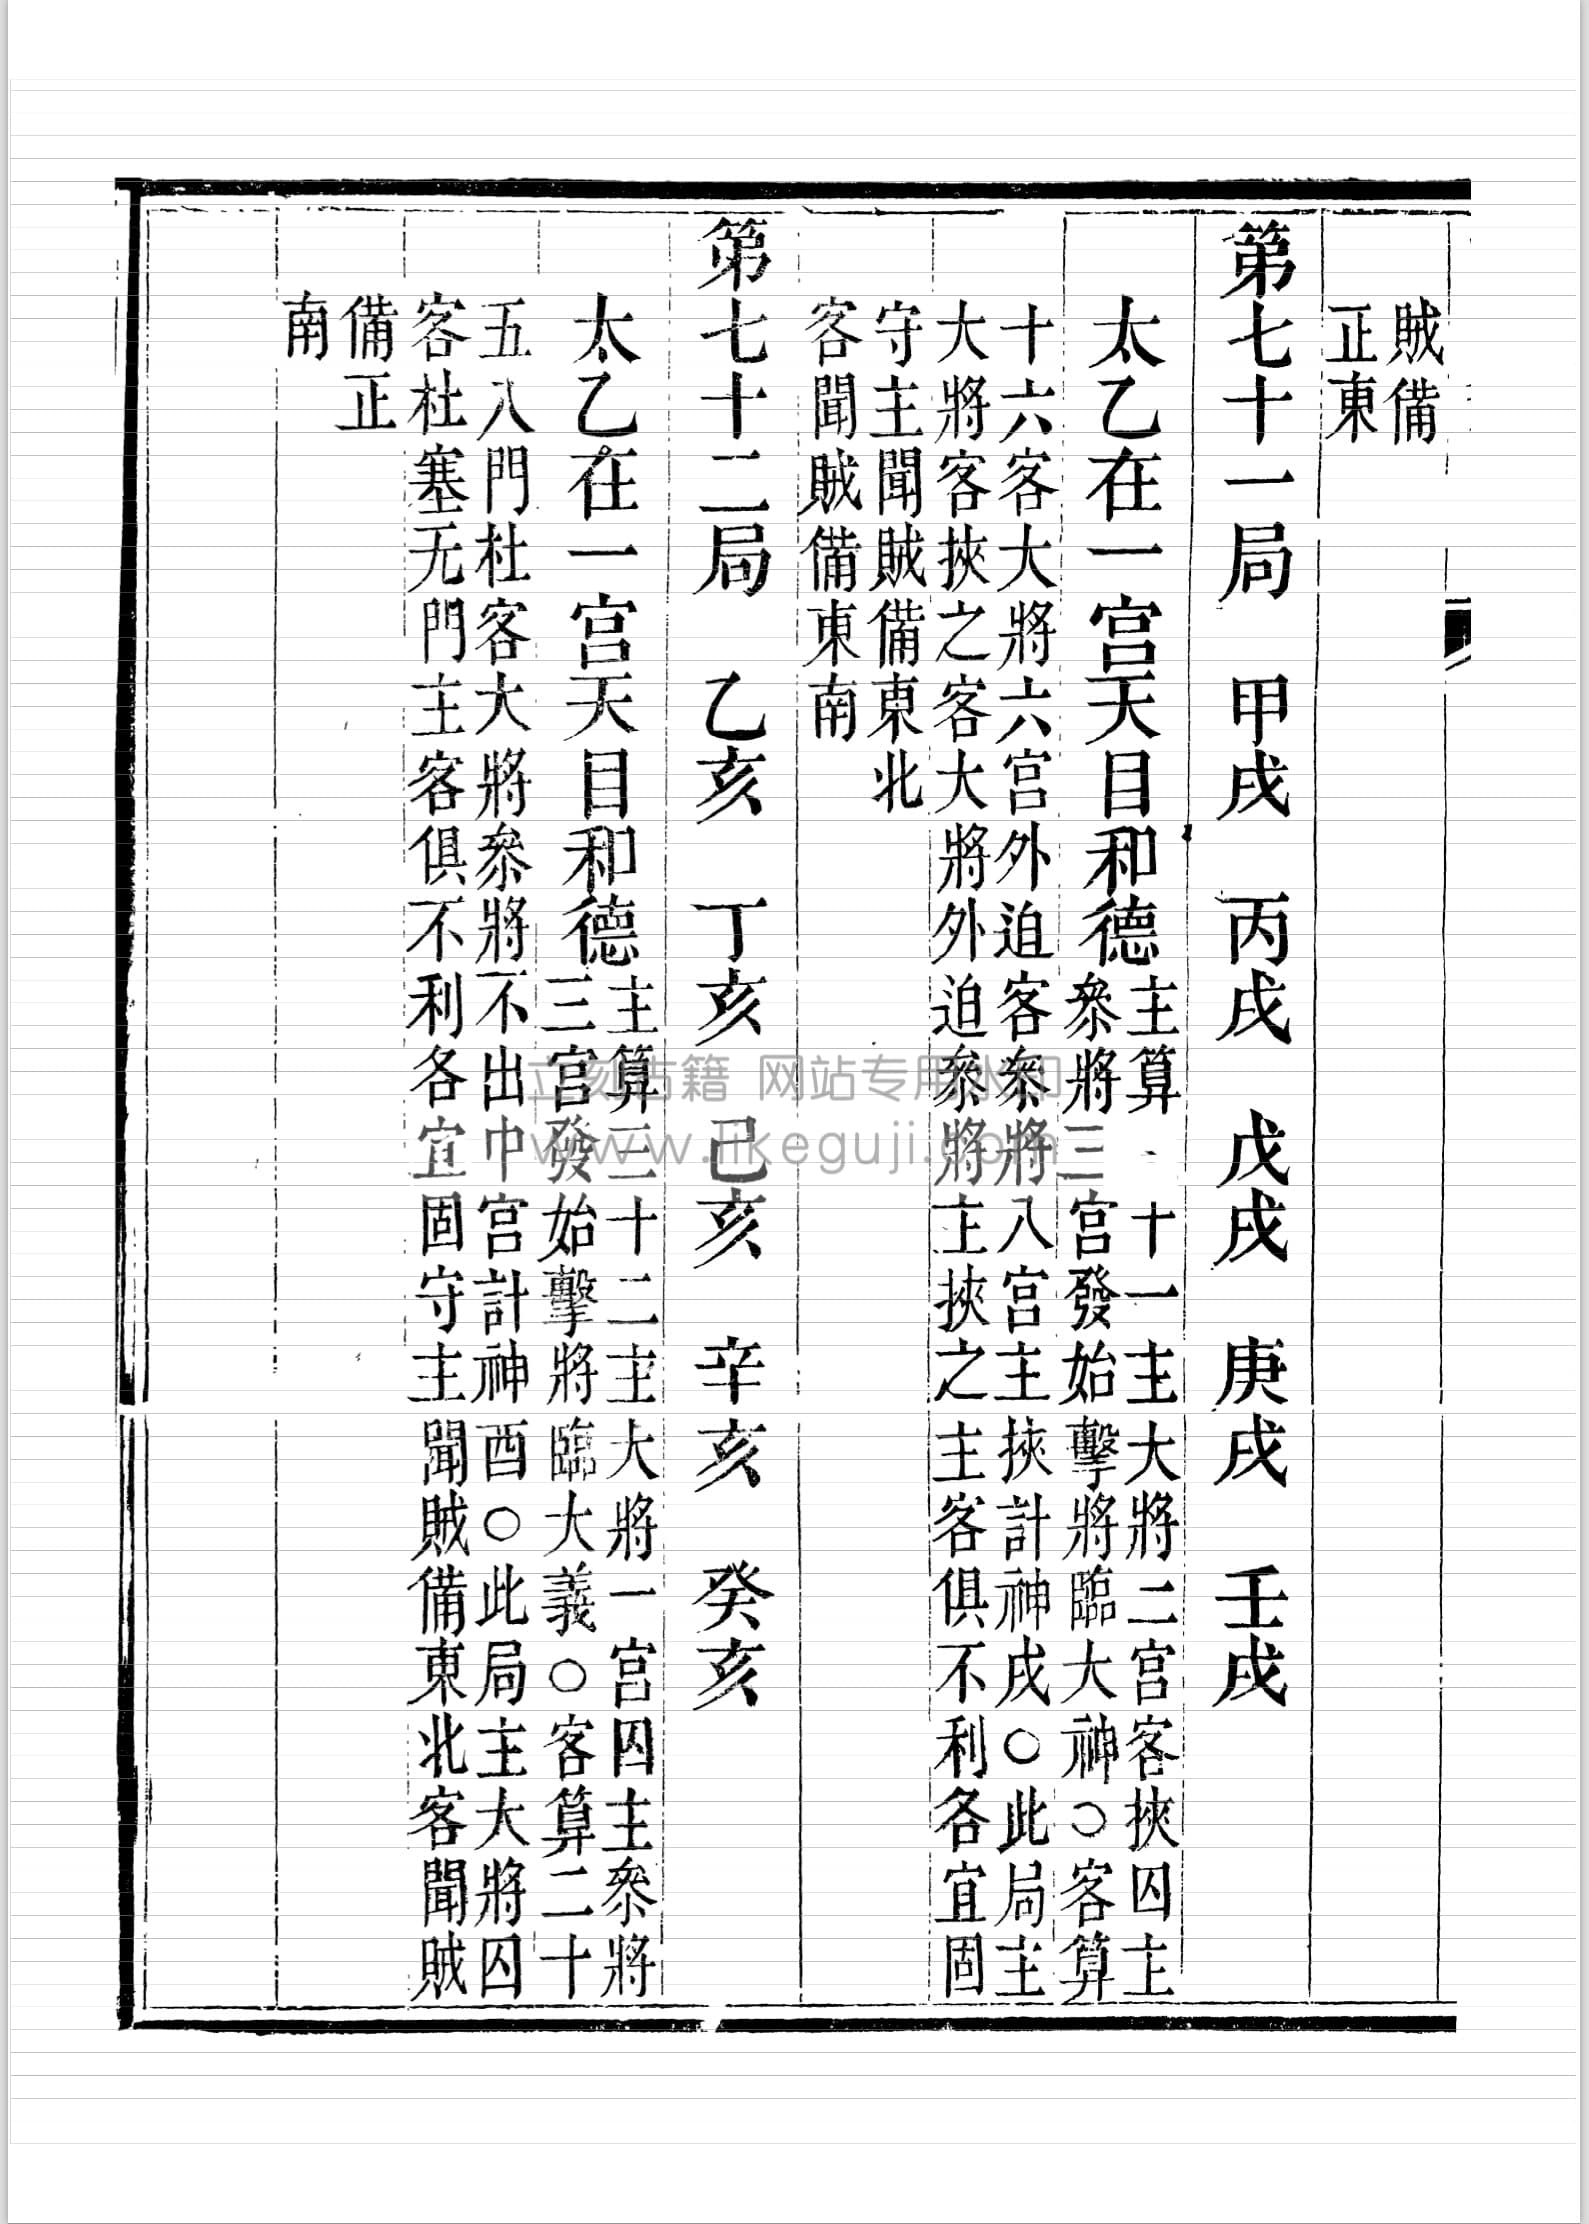 賊備
正東
第七十一局 甲戌 丙戌 戊戌 庚戌 壬戌
太乙在一宮天目和德
主算十一主大將二宮客挾囚主
叅將三宮發始擊將臨大神○客算
十六客大將六宮外迫客叅將八宮主挾計神戌○此局主
大將客挾之客大將外迫叅將主挾之主客俱不利各宜固
守主聞賊備東北
客聞賊備東南
第七十二局 乙亥 丁亥 己亥 辛亥 癸亥
太乙在一宮天目和德
主算三十二主大將一宮囚主叅將
三宮發始擊將臨大義○客算二十
五八門杜客大將叅將不出中宮計神酉○此局主大將囚
客杜塞无門主客俱不利各宜固守主聞賊備東北客聞賊
備正
南
立刻古籍 网站专用水印
www.likeguji.com